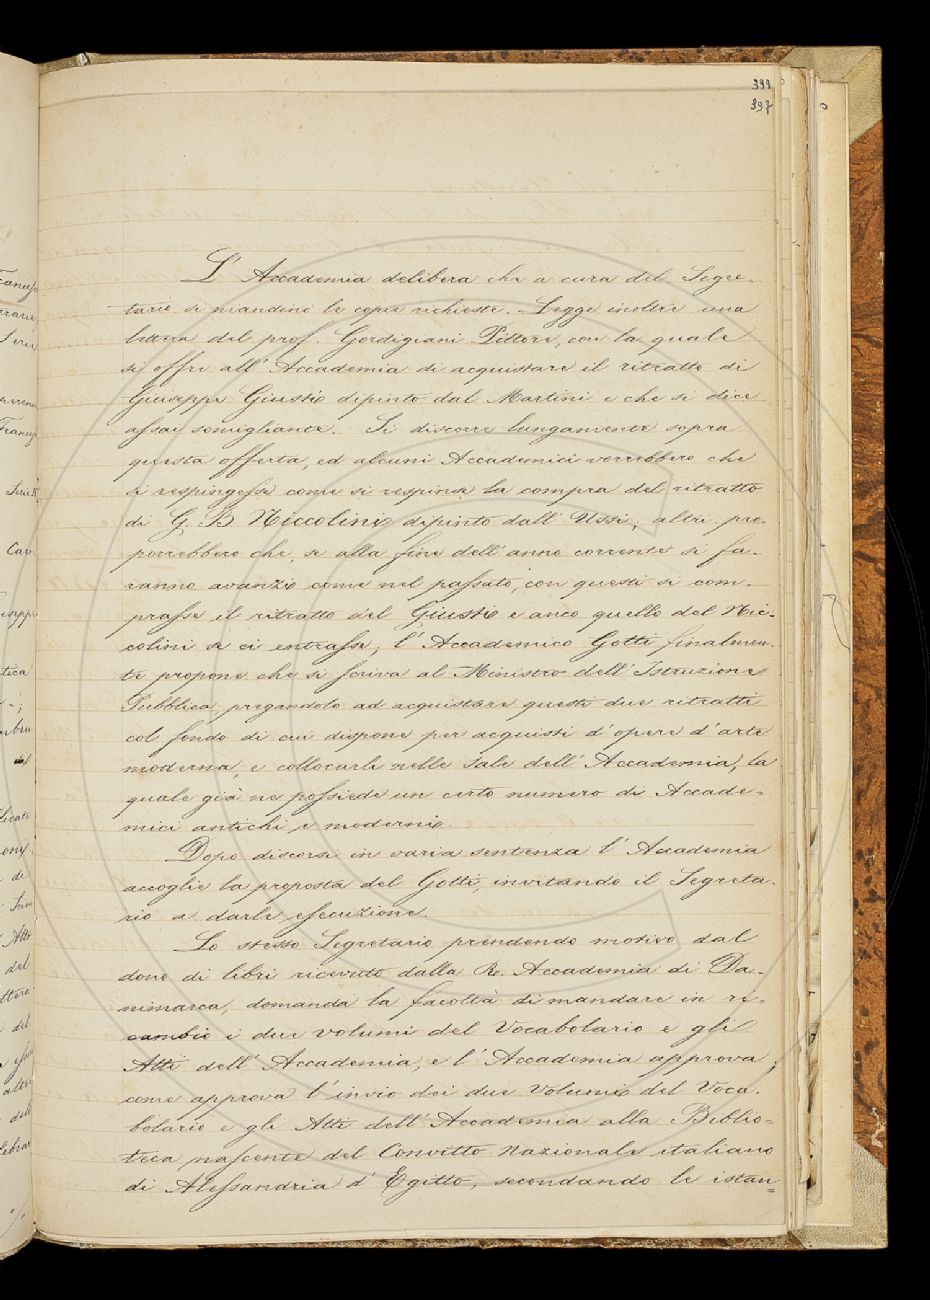 399
397
L' Accademia delibera che a cura del Segre-
tario si mandino le copie richieste. Legge inoltre una
lettera del prof. Gordigiani Pittore, con la quale
si offre all' Accademia di acquistare il ritratto di
Giuseppe Giusti dipinto dal Martini e che si dice
assai somigliante. Si discorre lungamente sopra
questa offerta, ed alcuni Accademici vorrebbero che
si respingesse come si respinse la compra del ritratto
di G. B. Niccolini dipinto dall' Ussi; altri pro-
porrebbero che, se alla fine dell' anno corrente si fa-
ranno avanzi come nel passato, con questi si com-
prasse il ritratto del Giusti e anco quello del Nic-
colini se ci entrasse; l' Accademico Gotti finalmen-
te propone che si scriva al Ministro dell' Istruzione
Pubblica, pregandolo ad acquistare questi due ritratti
col fondo di cui dispone per acquisti d' opere d' arte
moderna, e collocarli nelle Sale dell' Accademia, la
quale già ne possiede un certo numero di Accade-
mici antichi e moderni.
Dopo discorsi in varia sentenza l' Accademia
accoglie la proposta del Gotti, invitando il Segreta-
rio a darle esecuzione.
Lo stesso Segretario prendendo motivo dal
dono di libri ricevuto dalla Re. Accademia di Da-
nimarca, domanda la facoltà di mandare in ri-
cambio i due volumi del Vocabolario e gli
Atti dell' Accademia, e l' Accademia approva;
come approva l' invio dei due Volumi del Voca-
bolario e gli Atti dell' Accademia alla Biblio-
teca nascente del Convitto Nazionale italiano
di Alessandria d' Egitto, secondando le istan=